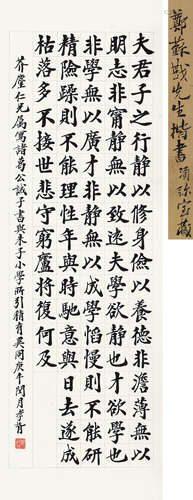 鄭蘇戡先生楷書
夫君子之行靜以修身儉以養德非澹薄無以
明志非寧靜無以致遠夫學欲靜也才欲學也
非學無以廣才非靜無以成學慆慢則不能研
精險躁則不能理性年與時馳意與日去遂成
枯落多不接世悲守窮廬將復何及
仁兄屬寫諸葛公誡子書與朱子小學所引稍有異同庚午閏月孝胥